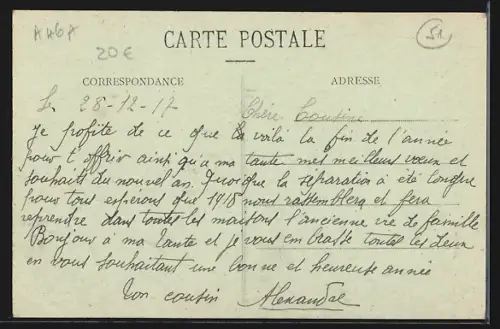 A H6A
20€
CARTE POSTALE
51
CORRESPONDANCE
ADRESSE
Le 28-12-17 Chère Cousine
Je profite de ce que la voilà la fin de l'année
pour t'offrir ainsi qu'a ma tante mes meilleurs vœux et
souhaits du nouvel an. Quoique la séparation à été longue
pour tous esperons que 1918 nous rassemblera et fera
reprendre dans toutes les maisons l'ancienne vie de famille
Bonjour à ma tante et je vous embrasse toutes les deux
en vous souhaitant une bonne et heureuse année
Ton cousin Alexandre